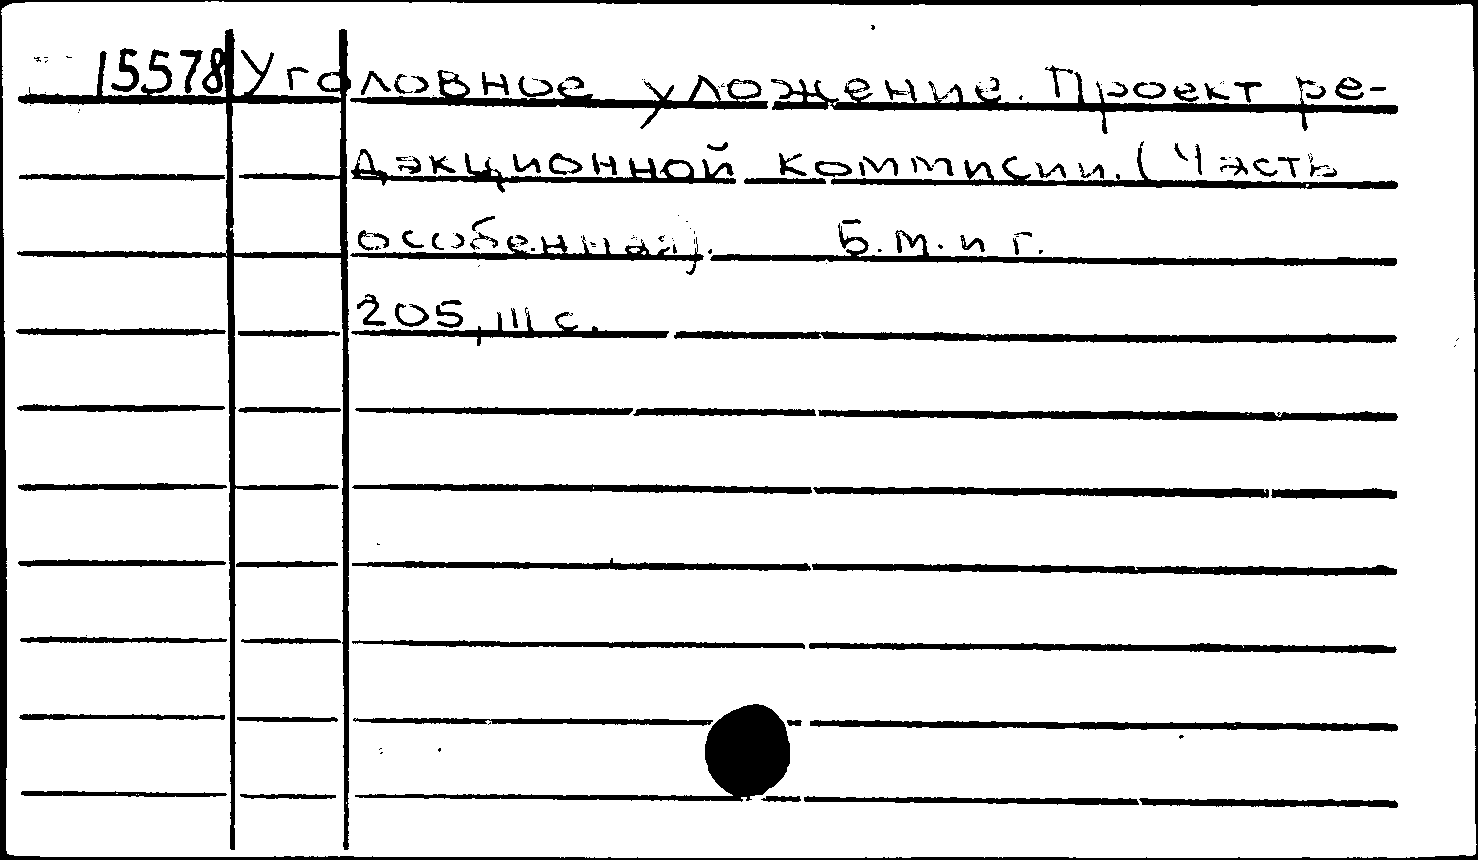 15578 Уголовное уложение. Проект ре-
дакционной коммисии. (Часть
особенная). Б.м. и г.
205, III с.